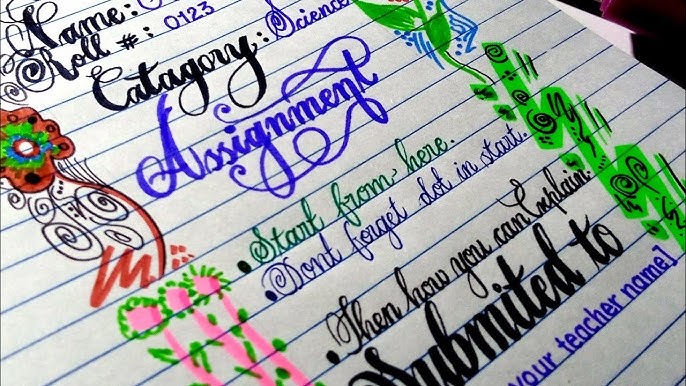 Name:
Roll #: 0123
Catagory: Science
Assignment
• Start from here.
• Dont forget dot in start.
• Then how you can Explain.
Submited to
your teacher name]